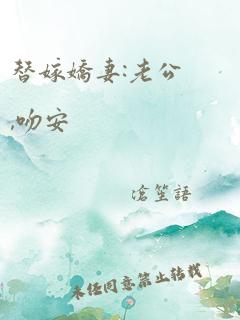 替嫁嬌妻:老公
,吻安
滄笙語
未經同意禁止轉載